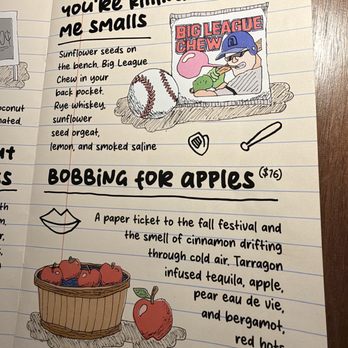 YOU'RE
ME SMALLS
Sunflower seeds on
the bench. Big League
Chew in your
back pocket.
Rye whiskey,
sunflower
seed orgeat,
lemon, and smoked saline
BIG LEAGUE
CHEW
BOBBING FOR APPLES ($16)
A paper ticket to the fall festival and
the smell of cinnamon drifting
through cold air. Tarragon
infused tequila, apple,
pear eau de vie,
and bergamot,
red hots